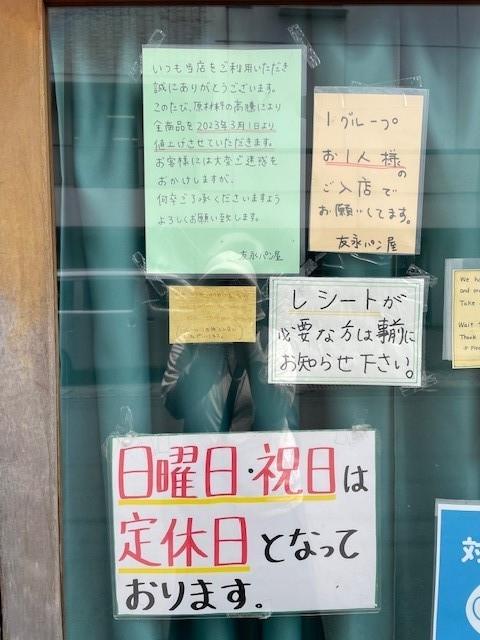 いつも当店をご利用いただき
誠にありがとうございます。
このたび、原材料の高騰により
全商品を2023年3月1日より
値上げさせていただきます。
お客様には大変ご迷惑を
おかけしますが、
何卒ご了承くださいますよう
よろしくお願い致します。
友永パン屋
1グループ
お1人様の
ご入店で
お願いしてます。
友永パン屋
レシートが
必要な方は事前に
お知らせ下さい。
We ha
and or
Take
Wait
Thank
日曜日・祝日は
定休日となって
おります。
対